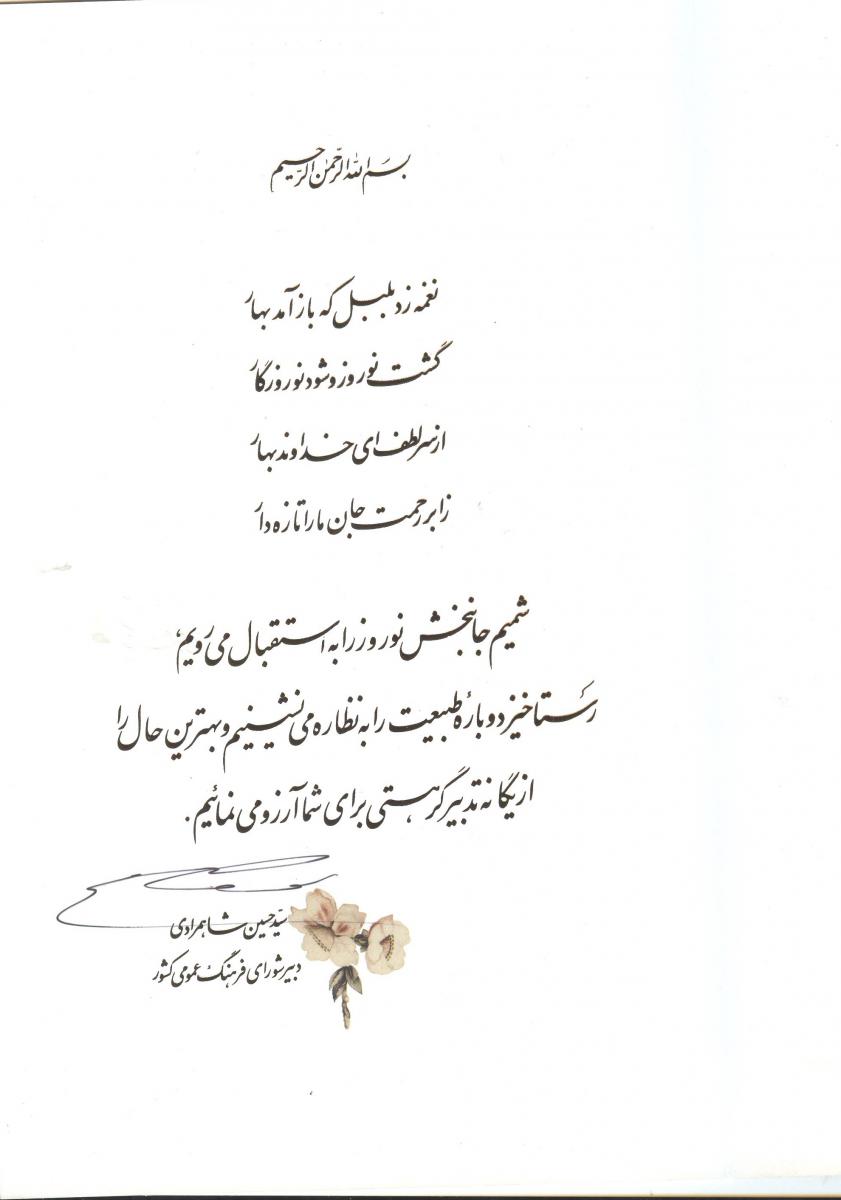 بسم الله الرّحمن الرّحیم
نغمه زد بلبل که باز آمد بهار
گشت نوروز و شود نو روزگار
از سر لطف ای خداوند بهار
ز ابر رحمت جان ما را تازه دار
شمیم جانبخش نوروز را به استقبال می رویم،
رستاخیز دوبارهٔ طبیعت را به نظاره می نشینیم و بهترین حال را
از یگانه تدبیرگر هستی برای شما آرزو می نمائیم.
سیّد حسین شاهمرادی
دبیر شورای فرهنگ عمومی کشور